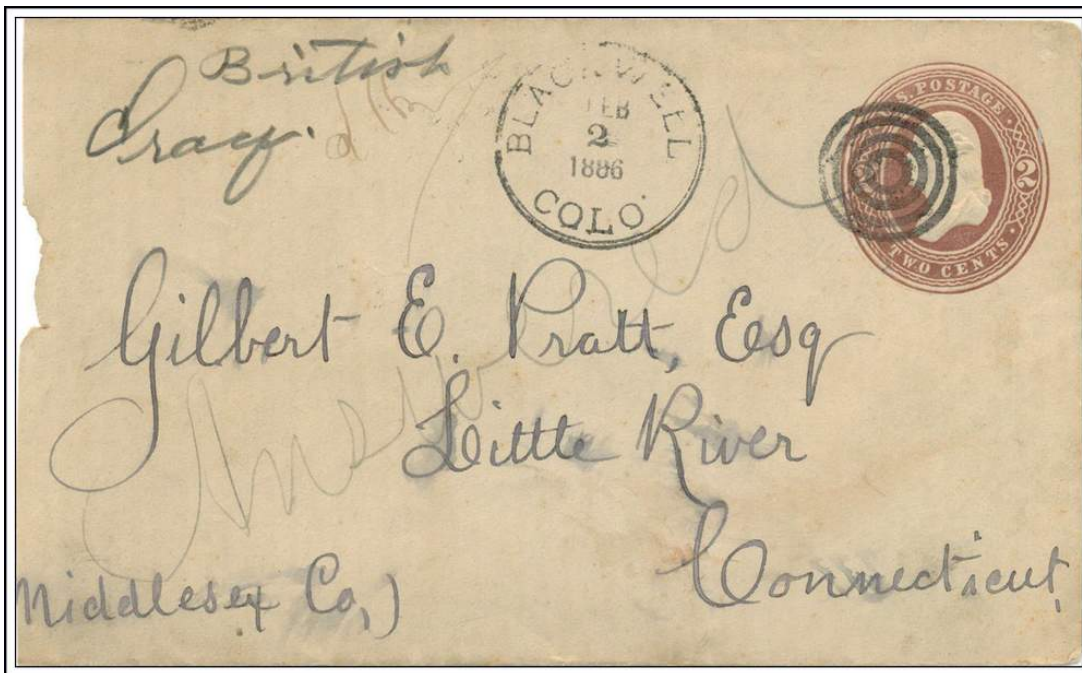 British
Iraq.
BLACKWELL
FEB
2
1886
COLO.
U.S. POSTAGE
2 2
TWO CENTS
Gilbert E. Pratt, Esq
Little River
Connecticut,
Middlesex Co,)
Answered